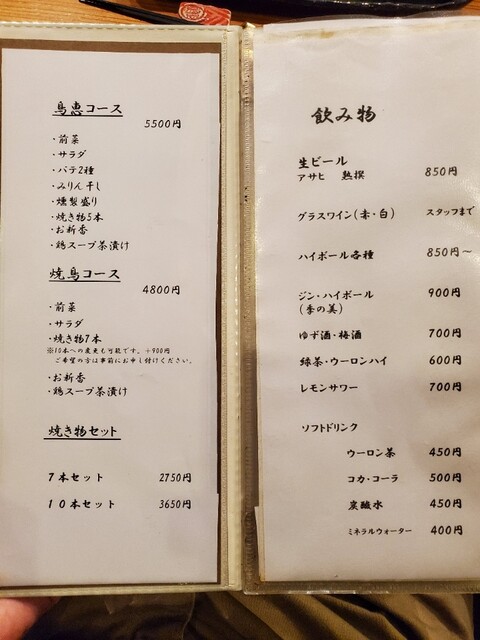 鳥恵コース
5500円
・前菜
・サラダ
・パテ2種
・みりん干し
・燻製盛り
・焼き物5本
・お新香
・鶏スープ茶漬け
焼鳥コース
4800円
・前菜
・サラダ
・焼き物7本
※10本への変更も可能です。+900円
ご希望の方は事前にお申し付けください。
・お新香
・鶏スープ茶漬け
焼き物セット
7本セット 2750円
10本セット 3650円
飲み物
生ビール
アサヒ 熟撰 850円
グラスワイン(赤・白) スタッフまで
ハイボール各種 850円~
ジン・ハイボール 900円
(季の美)
ゆず酒・梅酒 700円
緑茶・ウーロンハイ 600円
レモンサワー 700円
ソフトドリンク
ウーロン茶 450円
コカ・コーラ 500円
炭酸水 450円
ミネラルウォーター 400円